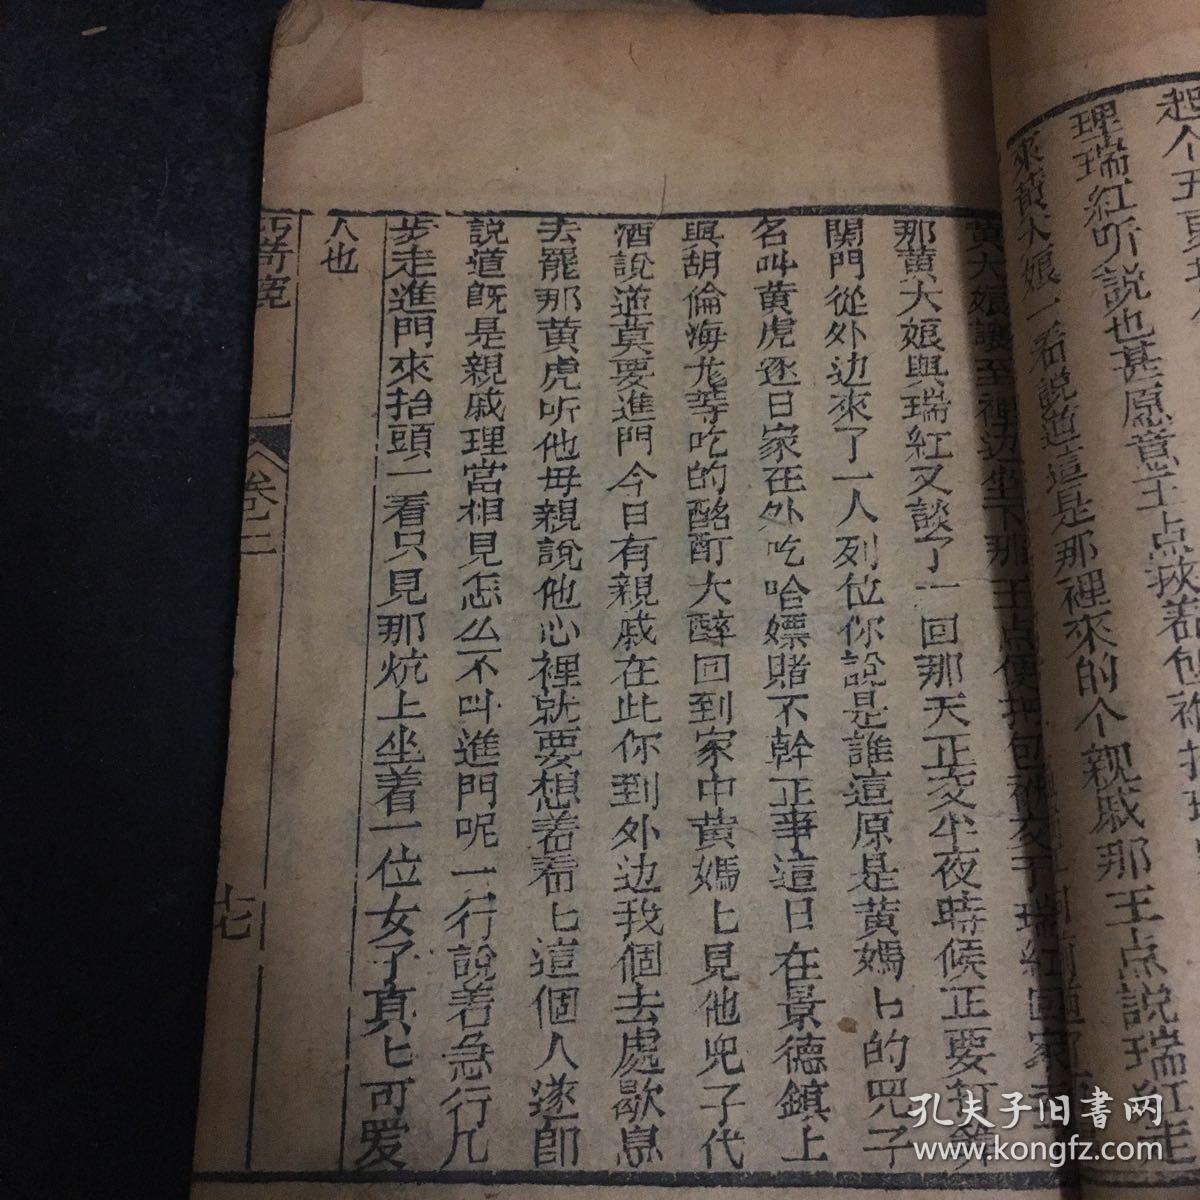 起个五更
理瑞紅听説也甚愿意王点救着包袱
來黄大娘一看説道這是那裡來的个親戚那王点説瑞紅走
黄大娘讓至裡边坐下那王点便把包袱交于瑞紅回家去
那黄大娘與瑞紅又談了一回那天正交半夜時候正要打算
関門從外边來了一人列位你說是誰這原是黄媽匕的兕子
名叫黄虎逐日家在外吃哈嫖賭不幹正事這日在景德鎮上
與胡倫海龙等吃的酩酊大醉回到家中黄媽匕見他兕子代
酒說道莫要進門今日有親戚在此你到外边我個去處歇息
去罷那黄虎听他毋親說他心裡就要想着看匕這個人遂即
說道既是親戚理當相見怎么不叫進門呢一行說着急行几
步走進門來抬頭一看只見那炕上坐着一位女子真匕可爱
人也
卷二
十七
孔夫子旧書网
www.kongfz.com